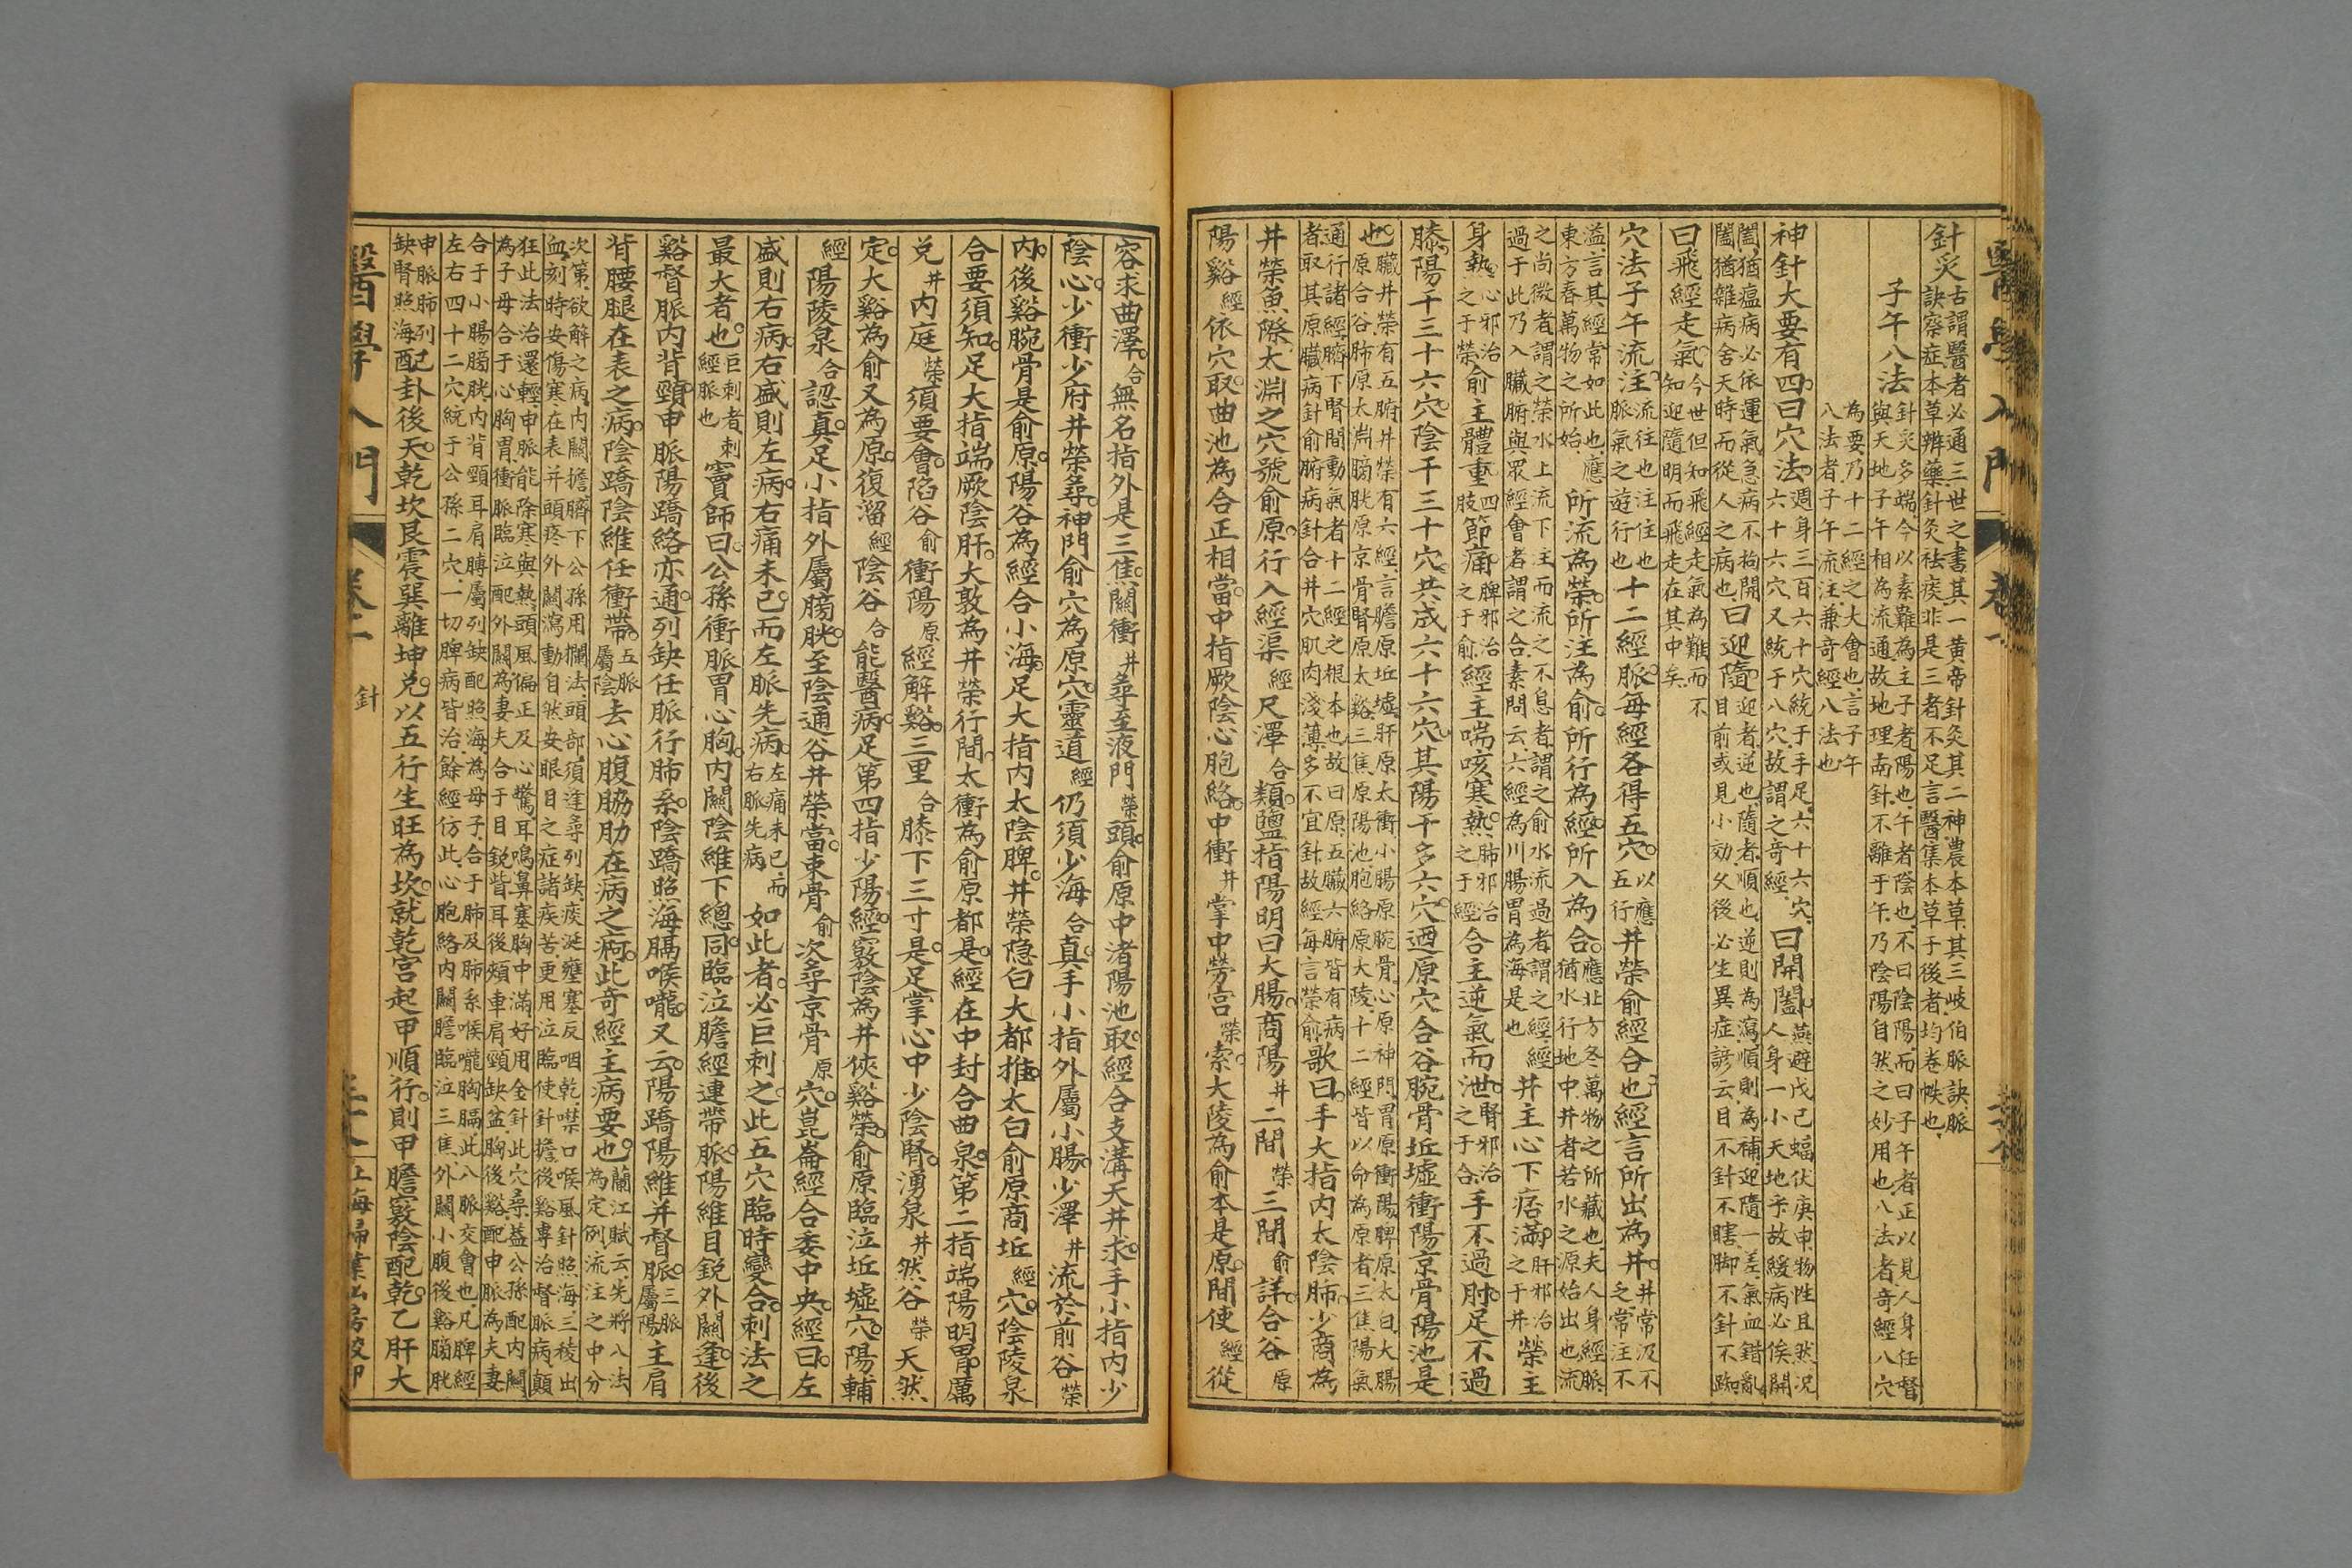 醫學入門
針灸古謂醫者必通三世之書其一黃帝針灸其二神農本草其三岐伯脈訣脈訣察症本草辨藥針灸祛疾非是三者不足言醫集本草于後者均卷帙也
子午八法針灸多端今以素難為主子者陽也午者陰也不曰陰陽而曰子午者正以見人身任督與天地子午相為流通故地理南針不離子午乃陰陽自然之妙用也八法者奇經八穴
為要乃十二經之大會也言子午八法者子午流注兼奇經八法也
神針大要有四曰穴法週身三百六十穴統于手足六十六穴六十六穴又統于八穴故謂之奇經曰開闔燕避戊己蝠伏庚申物性且然況人身一小天地乎故緩病必俟開
闔猶瘟病必依運氣急病不拘開闔猶雜病舍天時而從人之病也曰迎隨迎者逆也隨者順也逆則為瀉順則為補迎隨一差氣血錯亂目前或見小効久後必生異症諺云目不針不瞎脚不針不跛
曰飛經走氣今世但知飛經走氣為難而不知迎隨明而飛走在其中矣
穴法子午流注流往也注住也脈氣之遊行也十二經脈每經各得五穴以應五行井榮俞經合也經言所出為井井常汲不之常汪不
溢言其經常如此也應東方春萬物之所始所流為榮所注為俞所行為經所入為合應北方冬萬物之所藏也夫人身經脈猶水行地中井者若水之源始出也流
之尚微者謂之榮水上流下主而流之不息者謂之俞水流過者謂之經經過于此乃入臟腑與眾經會者謂之合素問云六經為川腸胃為海是也井主心下痞滿肝邪治之于井榮主
身熱心邪治之于榮俞主體重四肢節痛脾邪治之于俞經主喘咳寒熱肺邪治之于經合主逆氣而泄腎邪治之于合手不過肘足不過
膝陽千三十六穴陰千三十穴共成六十六穴其陽千多六穴迺原穴合谷腕骨坵墟衝陽京骨陽池是
也臟井榮有五腑井榮有六經言膽原坵墟肝原太衝小腸原腕骨心原神門胃原衝陽脾原太白大腸原合谷肺原太淵膀胱原京骨腎原太谿三焦原陽池胞絡原大陵十二經皆以命為原者三焦陽氣
通行諸經臍下腎間動氣者十二經之根本也故曰原五臟六腑皆有病者取其原臟病針俞腑病針合井穴肌肉淺薄多不宜針故經每言榮俞歌曰手大指內太陰肺少商為
井榮魚際太淵之穴號俞原行入經渠經尺澤合類鹽指陽明曰大腸商陽井二間榮三間俞詳合谷原
陽谿經依穴取曲池為合正相當中指厥陰心胞絡中衝井掌中勞宮榮索大陵為俞本是原間使經從
容求曲澤合無名指外是三焦關衝井尋至液門榮頭俞原中渚陽池取經合支溝天井求手小指內少
陰心少衝少府井榮尋神門俞穴為原穴靈道經仍須少海合真手小指外屬小腸少澤井流於前谷榮
內後谿腕骨是俞原陽谷為經合小海足大指內太陰脾井榮隐白大都推太白俞原商坵經穴陰陵泉
合要須知足大指端厥陰肝大敦為井榮行間太衝為俞原都是經在中封合曲泉第二指端陽明胃厲
兌井內庭榮須要會陷谷俞衝陽原經解谿三里合膝下三寸是足掌心中少陰腎湧泉井然谷榮天然
定大谿為俞又為原復溜經陰谷合能醫病足第四指少陽經竅陰為井俠谿榮俞原臨泣坵墟穴陽輔
經陽陵泉合認真足小指外屬膀胱至陰通谷井榮當束骨俞次尋京骨原穴崑崙經合委中央經曰左
盛則右病右盛則左病右痛未已而左脈先病左痛未已而右脈先病如此者必巨刺之此五穴臨時變合刺法之
最大者也巨刺者刺經脈也竇師曰公孫衝脈胃心胸內關陰維下總同臨泣膽經連帶脈陽維目銳外關逢後
谿督脈內背頸申脈陽蹻絡亦通列缺任脈行肺系陰蹻照海膈喉嚨又云陽蹻陽維并督脈三脈屬陽主肩
背腰腿在表之病陰蹻陰維任衝帶五脈屬陰去心腹脇肋在病之疴此奇經主病要也蘭江賦云先將八法為定例流注之中分
次第欲解之病內關擔臍下公孫用攔法頭部須逢尋列缺痰涎壅塞反咽乾噤口喉風針照海三稜出血刻時安傷寒在表并頭疼外關瀉動自然安眼目之症諸疾苦更用泣臨使針擔後谿專治督脈病癲
狂此法治還輕申脈能除寒與熱頭風偏正及心驚耳鳴鼻塞胸中滿好用金針此穴尋葢公孫配內關為子母合于心胸胃衝脈臨泣配外關為妻夫合于目銳眥耳後頰車肩頸缺盆胸後谿配申脈為夫妻
合于小腸膀胱內背頸耳肩膊屬列缺配照海為母子合于肺及肺系喉嚨胸膈此八脈交會也凡脾經左右四十二穴統于公孫二穴一切脾病皆治餘經仿此心胞絡內關膽臨泣三焦外關小腹後谿膀胱
申脈肺列缺腎照海配卦後天乾坎艮震巽離坤兌以五行生旺為坎就乾宮起甲順行則甲膽竅陰配乾乙肝大
醫學入門
卷二 針
上海掃葉山房校印